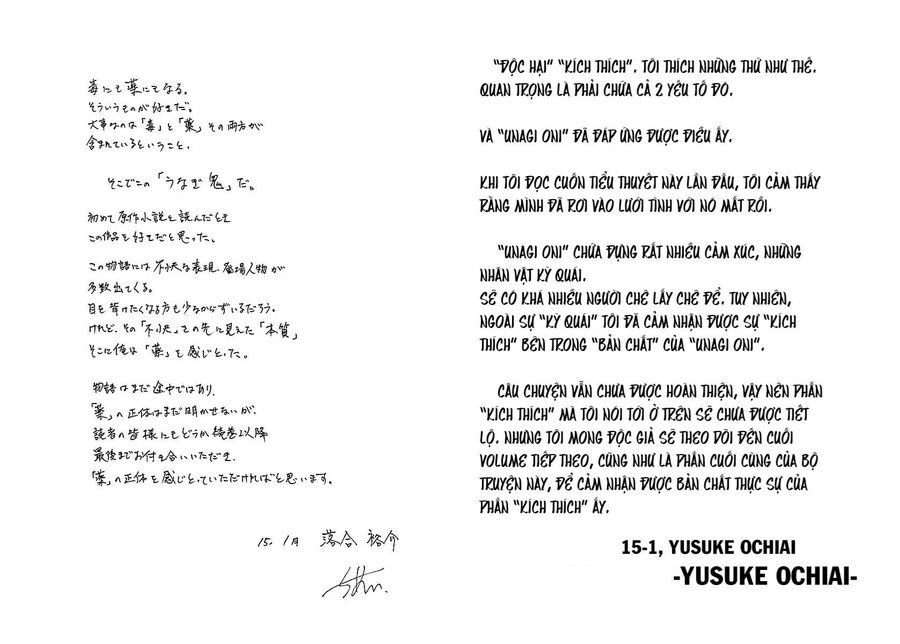 毒にも薬にもなる。
そういうものが好きだ。
大事なのは「毒」と「薬」その両方が
含まれているということ。
そこでこの「うなぎ鬼」だ。
初めて原作小説を読んだとき
この作品を好きだと思った。
この物語には不快な表現、登場人物が
多数出てくる。
目を背けたくなる方も少なからずいるだろう。
けれど、その「不快」との先に見えた「本質」
そこに俺は「薬」を感じとった。
物語はまだ途中ではあり、
「薬」の正体はまだ明かせないが、
読者の皆様にもどうか続巻以降
最後までお付き合いいただき、
「薬」の正体を感じとっていただければと思います。
15. 1月 落合 裕介
“ĐỘC HẠI” “KÍCH THÍCH”. TÔI THÍCH NHỮNG THỨ NHƯ THẾ.
QUAN TRỌNG LÀ PHẢI CHỨA CẢ 2 YẾU TỐ ĐÓ.
VÀ “UNAGI ONI” ĐÃ ĐÁP ỨNG ĐƯỢC ĐIỀU ẤY.
KHI TÔI ĐỌC CUỐN TIỂU THUYẾT NÀY LẦN ĐẦU, TÔI CẢM THẤY
RẰNG MÌNH ĐÃ RƠI VÀO LƯỚI TÌNH VỚI NÓ MẤT RỒI.
“UNAGI ONI” CHỨA ĐỰNG RẤT NHIỀU CẢM XÚC, NHỮNG
NHÂN VẬT KỲ QUÁI.
SẼ CÓ KHÁ NHIỀU NGƯỜI CHÊ LẤY CHÊ ĐỂ. TUY NHIÊN,
NGOÀI SỰ “KỲ QUÁI” TÔI ĐÃ CẢM NHẬN ĐƯỢC SỰ “KÍCH
THÍCH” BÊN TRONG “BẢN CHẤT” CỦA “UNAGI ONI”.
CÂU CHUYỆN VẪN CHƯA ĐƯỢC HOÀN THIỆN, VẬY NÊN PHẦN
“KÍCH THÍCH” MÀ TÔI NÓI TỚI Ở TRÊN SẼ CHƯA ĐƯỢC TIẾT
LỘ. NHƯNG TÔI MONG ĐỘC GIẢ SẼ THEO DÕI ĐẾN CUỐI
VOLUME TIẾP THEO, CŨNG NHƯ LÀ PHẦN CUỐI CÙNG CỦA BỘ
TRUYỆN NÀY, ĐỂ CẢM NHẬN ĐƯỢC BẢN CHẤT THỰC SỰ CỦA
PHẦN “KÍCH THÍCH” ẤY.
15-1, YUSUKE OCHIAI
-YUSUKE OCHIAI-